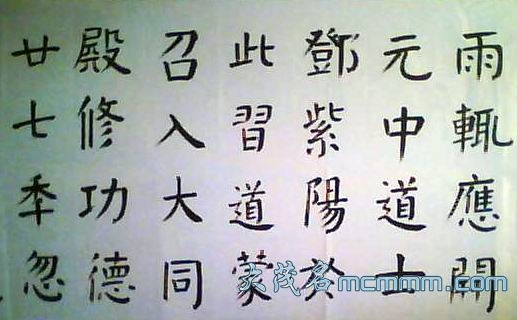 雨輒應開
元中道士
鄧紫陽於
此習道蒙
召入大同
殿修功德
廿七秊忽
茂名mcmmm.com